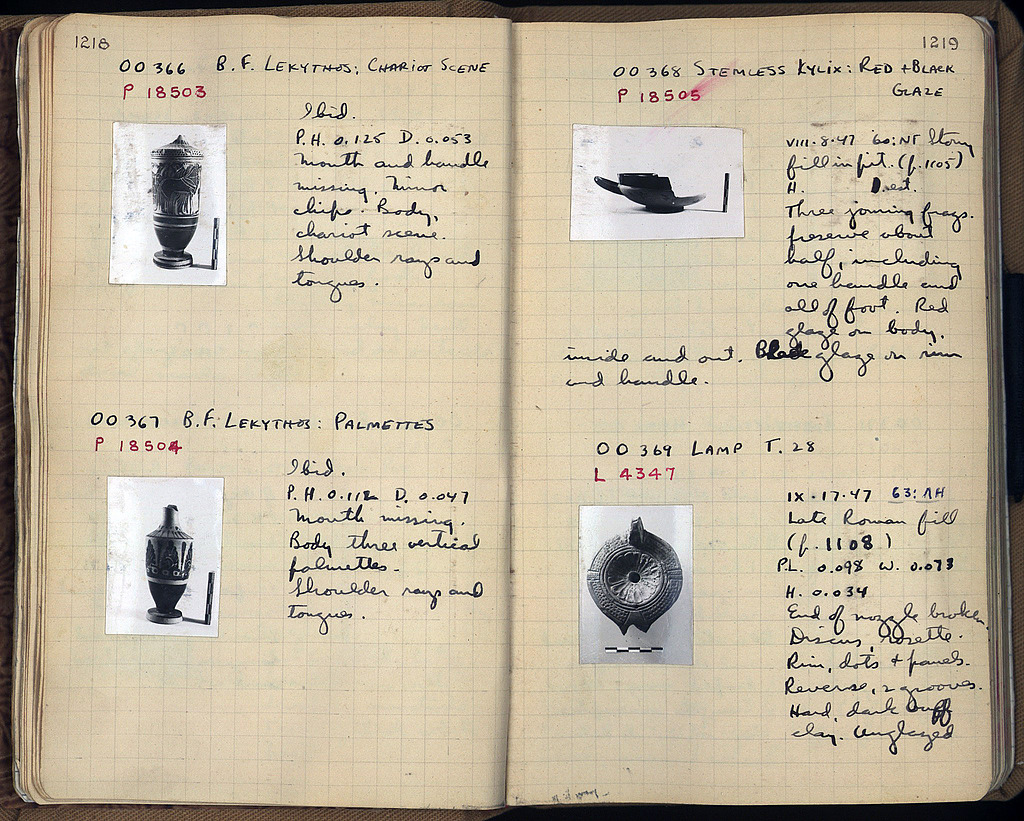 1218
OO 366 B.F. LEKYTHOS: CHARIOT SCENE
P 18503
Ibid.
P.H. 0.125 D. 0.053
Mouth and handle
missing. Minor
chips. Body,
chariot scene.
Shoulder rays and
tongues.
OO 367 B.F. LEKYTHOS: PALMETTES
P 18504
Ibid.
P.H. 0.112 D. 0.047
Mouth missing.
Body three vertical
palmettes.
Shoulder rays and
tongues.
1219
OO 368 STEMLESS KYLIX: RED + BLACK
GLAZE
P 18505
VIII-8-47 60:NT Stony
fill in pit. (p.1105)
H. D. est.
Three joining frags.
preserve about
half, including
one handle and
all of foot. Red
glaze on body,
inside and out. Black glaze on rim
and handle.
OO 369 LAMP T. 28
L 4347
IX-17-47 63:ΛH
Late Roman fill
(p. 1108)
P.L. 0.098 W. 0.073
H. 0.034
End of nozzle broken.
Discus, rosette.
Rim, dots + panels.
Reverse, 2 grooves.
Hard, dark buff
clay. Unglazed